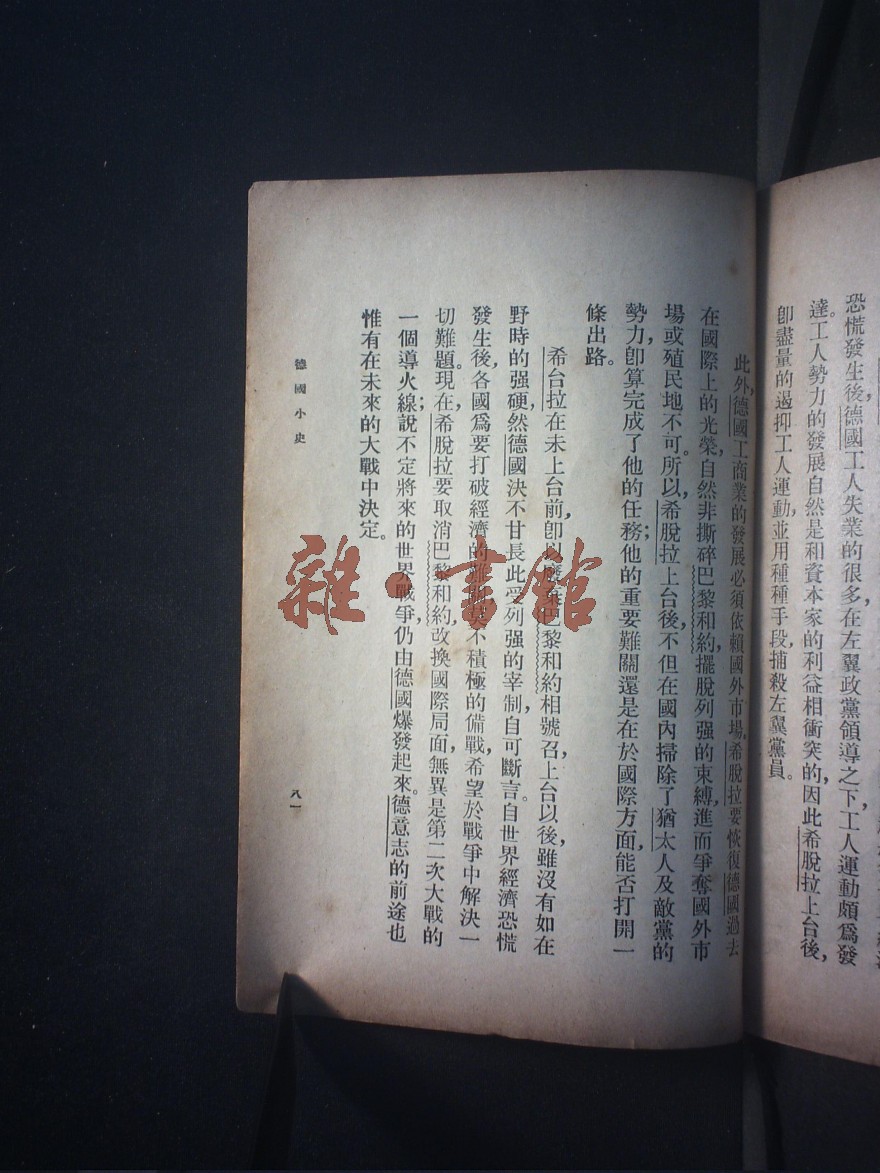 恐慌發生後，德國工人失業的很多，在左翼政黨領導之下，工人運動頗爲發
達。工人勢力的發展自然是和資本家的利益相衝突的，因此希脫拉上台後，
卽盡量的遏抑工人運動，並用種種手段，捕殺左翼黨員。
此外，德國工商業的發展必須依賴國外市場，希脫拉要恢復德國過去
在國際上的光榮，自然非撕碎巴黎和約，擺脫列强的束縛，進而爭奪國外市
場或殖民地不可。所以，希脫拉上台後，不但在國內掃除了猶太人及敵黨的
勢力，卽算完成了他的任務；他的重要難關還是在於國際方面，能否打開一
條出路。
希台拉在未上台前，卽以廢棄巴黎和約相號召，上台以後，雖沒有如在
野時的强硬，然德國決不甘長此受列强的宰制，自可斷言。自世界經濟恐慌
發生後，各國爲要打破經濟的難關，莫不積極的備戰，希望於戰爭中解決一
切難題。現在，希脫拉要取消巴黎和約，改換國際局面，無異是第二次大戰的
一個導火線；說不定將來的世界戰爭，仍由德國爆發起來。德意志的前途也
惟有在未來的大戰中決定。
德國小史
八一
雜·書館